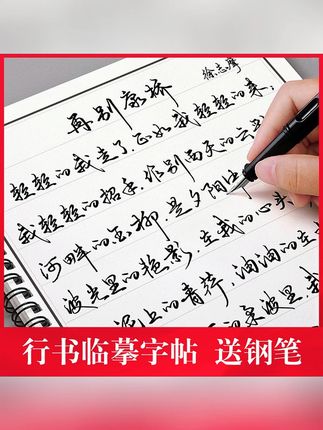 再别康桥
徐志摩
轻轻的我走了正如我轻轻的来,
我轻轻的招手,作别西天的云
河畔的金柳,是夕阳中
波光里的艳影,在我的心头
泥上的青荇,油油的在
柔波里我
行书临摹字帖 送钢笔